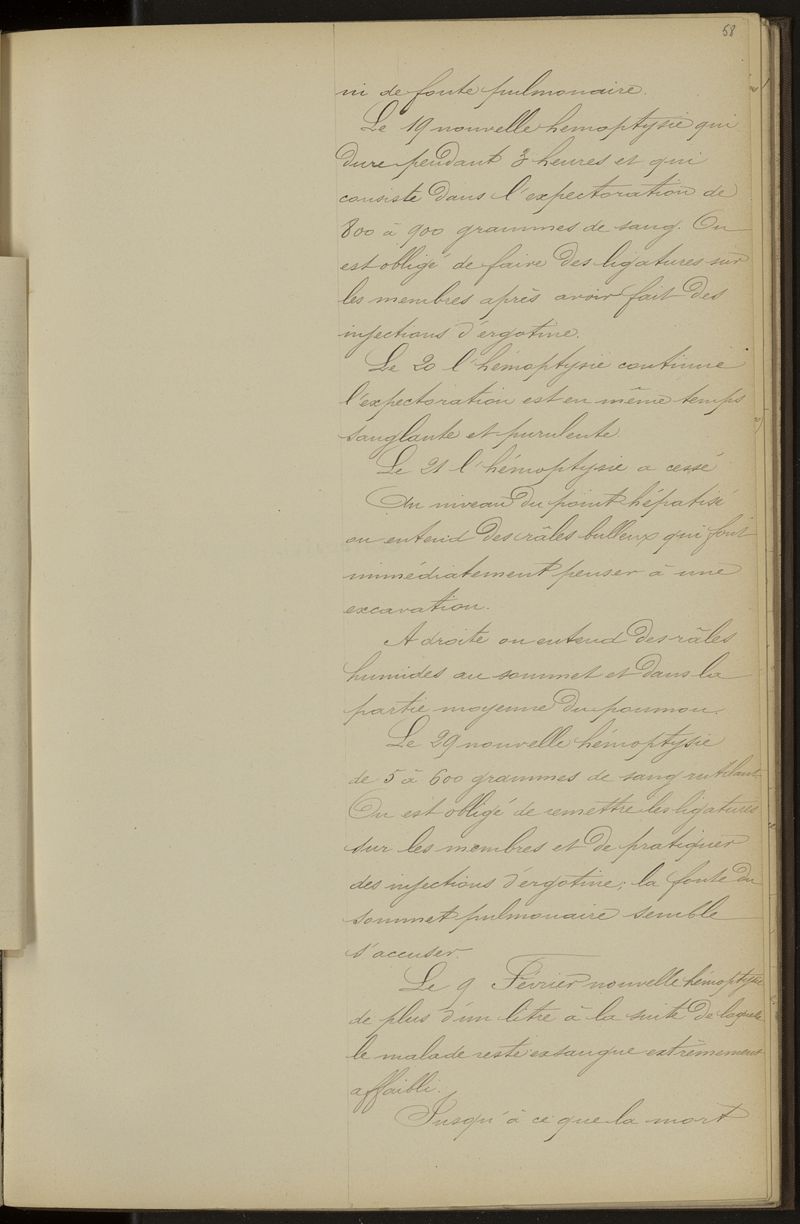 68
ni de fonte pulmonaire.
Le 19 nouvelle hemoptysie qui
dure pendant 3 heures et qui
consiste dans l'expectoration de
800 à 900 grammes de sang. On
est obligé de faire des ligatures sur
les membres après avoir fait des
injections d'ergotine.
Le 20 l'hémoptysie continue
l'expectoration est en même temps
sanglante et purulente.
Le 21 l'hémoptysie a cessé
Au niveau du point hépatisé
on entend des râles bulleux qui font
immédiatement penser à une
excavation.
A droite on entend des râles
humides au sommet et dans la
partie moyenne du poumon.
Le 29 nouvelle hémoptysie
de 5 à 600 grammes de sang rutilant.
On est obligé de remettre les ligatures
sur les membres et de pratiquer
des injections d'ergotine; la fonte du
sommet pulmonaire semble
s'accuser.
Le 9 Février nouvelle hémoptysie
de plus d'un litre à la suite de laquelle
le malade reste exsangue extrêmement
affaibli.
Jusqu'à ce que la mort